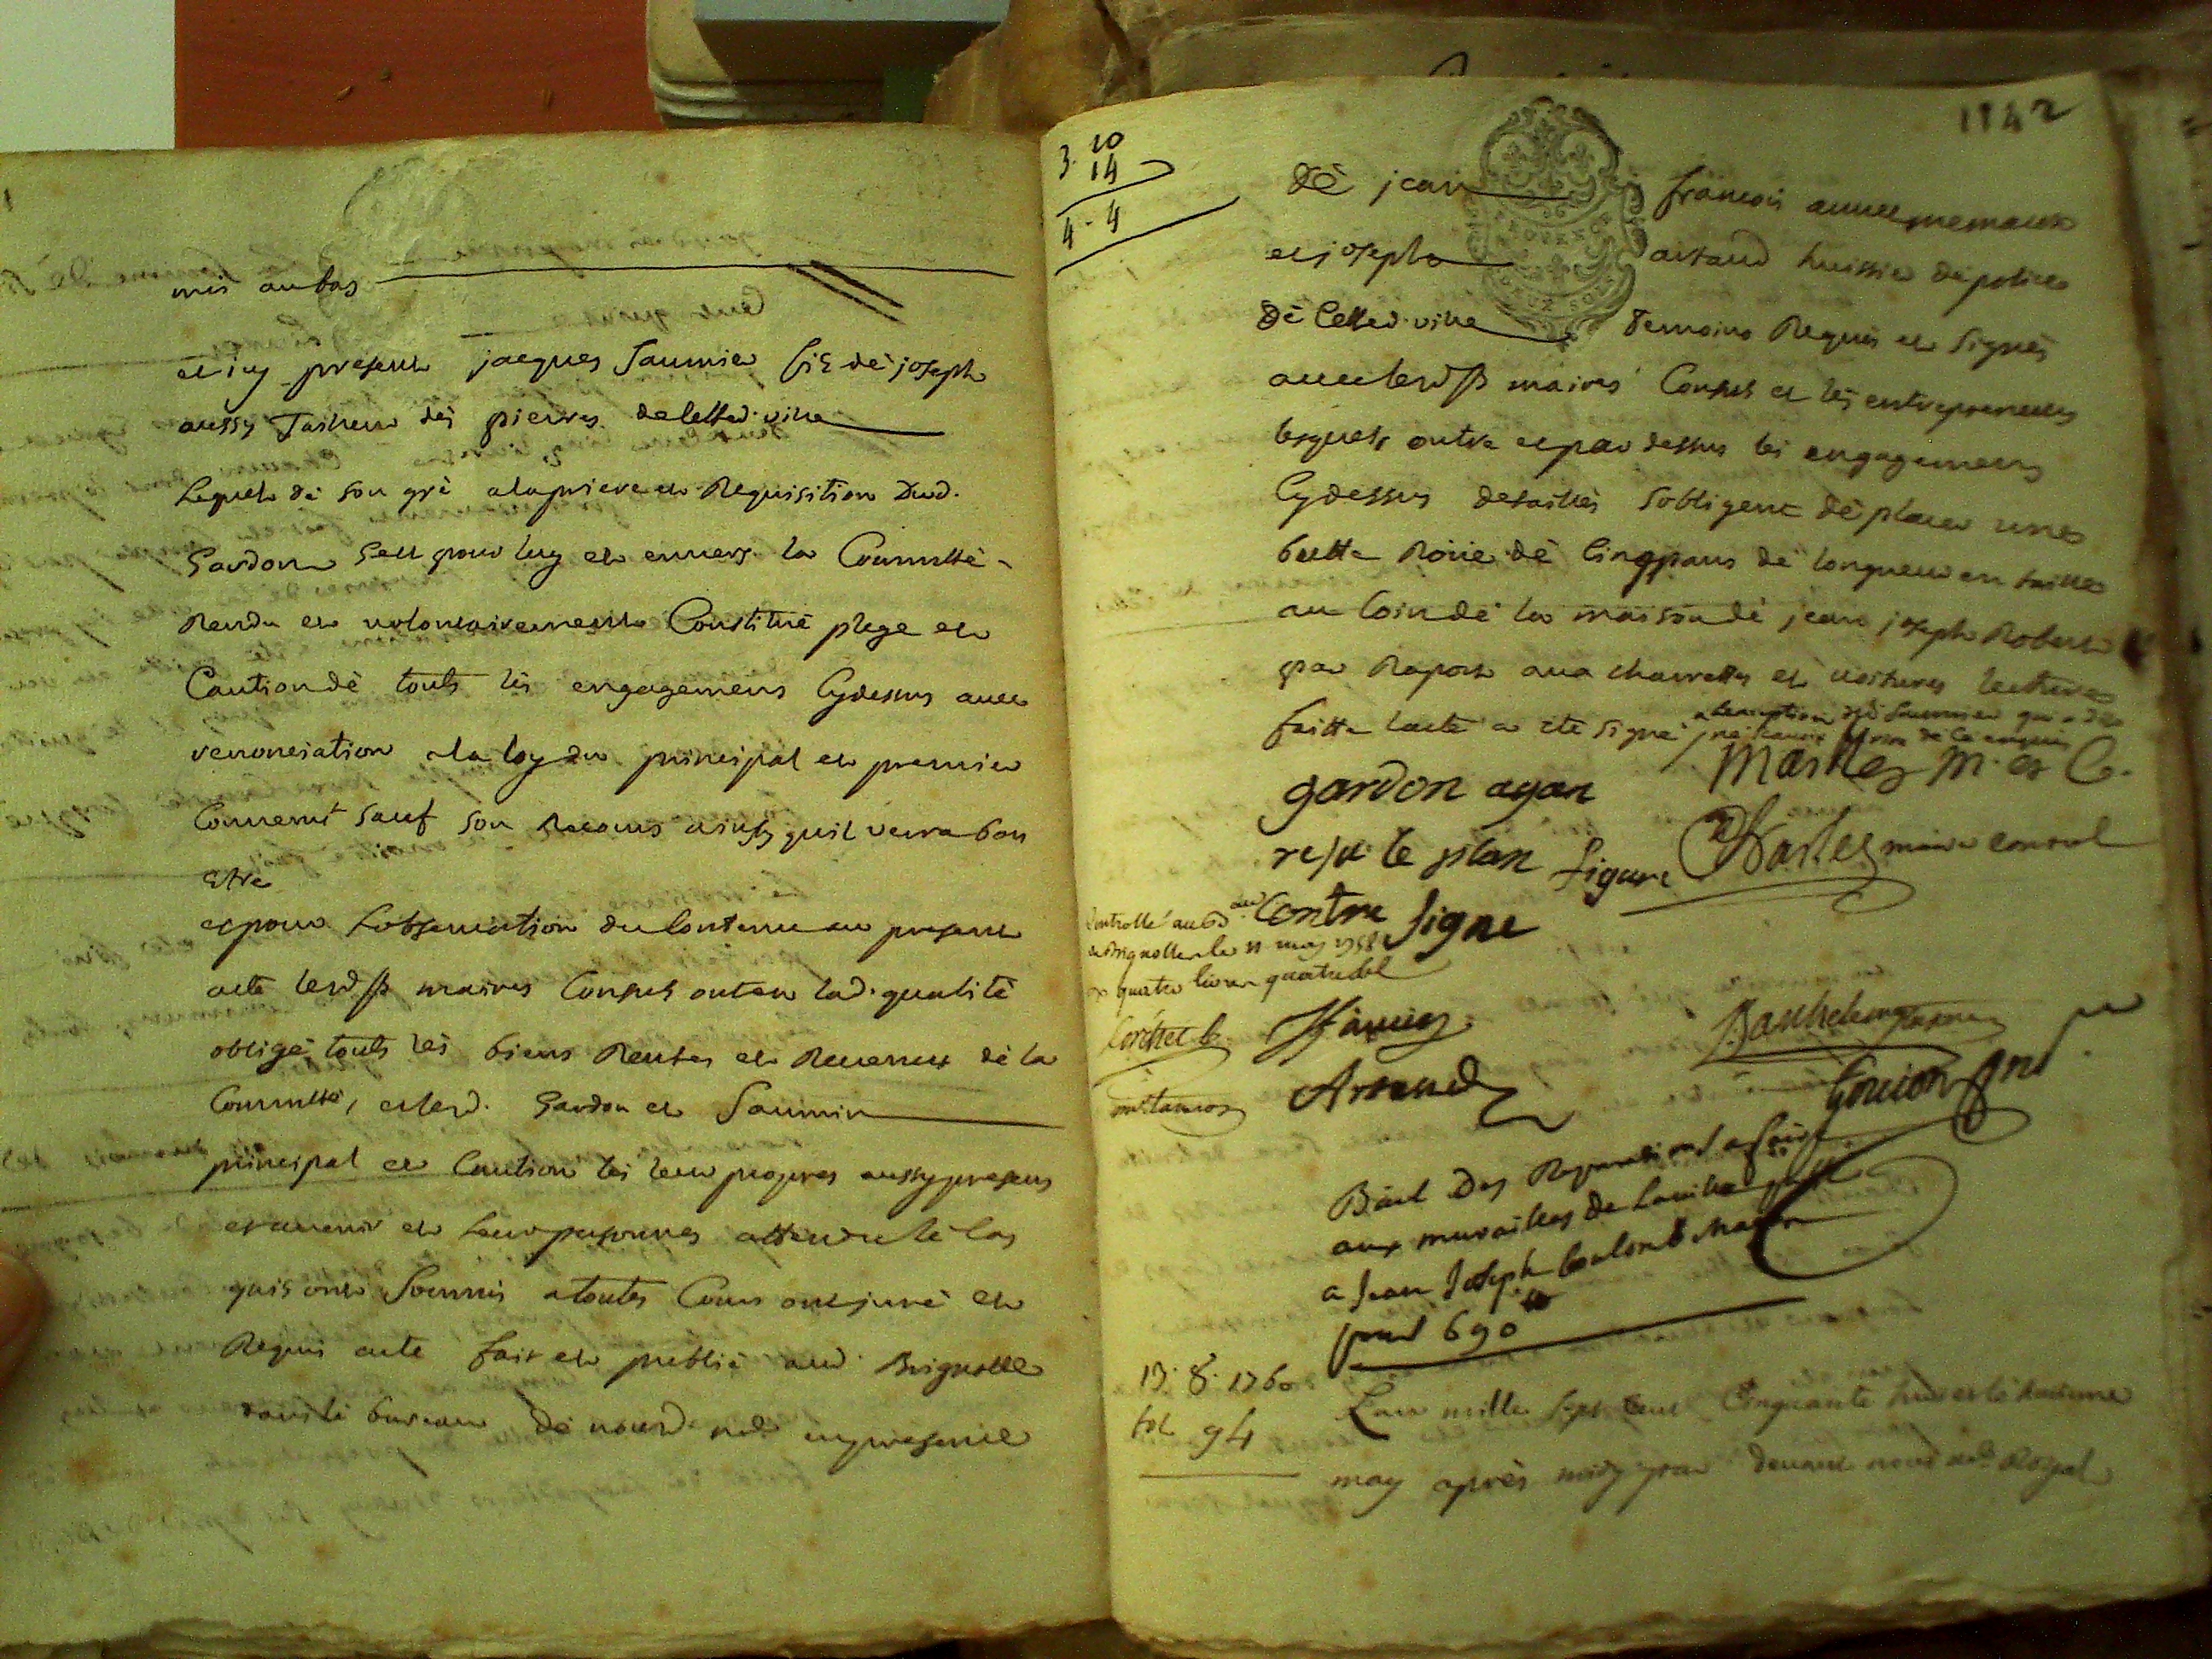 mis au bas
et icy present jacques Saumier fils dè joseph
aussy Tailleur dés pierres de cetted. ville
Lequel dè son grè a la priere et Requisition Dud.
Gardon seu pour luy et envers la Communté
Rendu et volontairement Constitué plege et
Caution dè touts lés engagemens Cydessus avec
renonciation a la loy du principal et premier
Convenu sauf son Recours ainsy quil verra bon
etre
et pour Lobservation du Contenu au present
acte lesd. srs maires Consuls ont en lad. qualitè
obligè touts lés biens Rentes et Revenus dé la
Communté, et lesd. Gardon et Saumier
principal et Caution lés leur propres aussy presens
et avenir et leurs personnes attendu lè cas
quis ont Soumis a toutes Cours ont jurè et
Requis acte fait et publiè aud. Brignolle
dans lé bureau dé nousd. nore en presence
1142
3. 10
14
4 - 4
dè jean françois
et joseph artaud huissier dé police
dè Cetted. ville Temoins Requis et Signés
avec lesd. srs maires Consuls et lés entrepreneurs
lesquels outre et par dessus lés engagemens
Cydessus detaillès Sobligent dè placer une
butte Roüe dè Cinq pans dé longueur en taille
au Coin dé la maison dè jean joseph Robert
par Raport aux charrettes et voitures lecture
faitte lacte a eté signé a lexception dud. Saumier qui a dit
ne savoir de ce enquis
gardon ayan
le plan figure
contre signe
M. et C.
maire consul
Controllé au Bd
a Brignolle le 11 may 1758
quatre livres quatre sol
Artaud
Goujon
Bail Des Reparations a faire
aux murailles de La ville
a Jean Joseph Coulomb Maçon
pour 690 tt
13. 8. 1760
fol. 94
Lan mille Sept Cent Cinquante huit et lé
may après midy par devant nous nore Royal